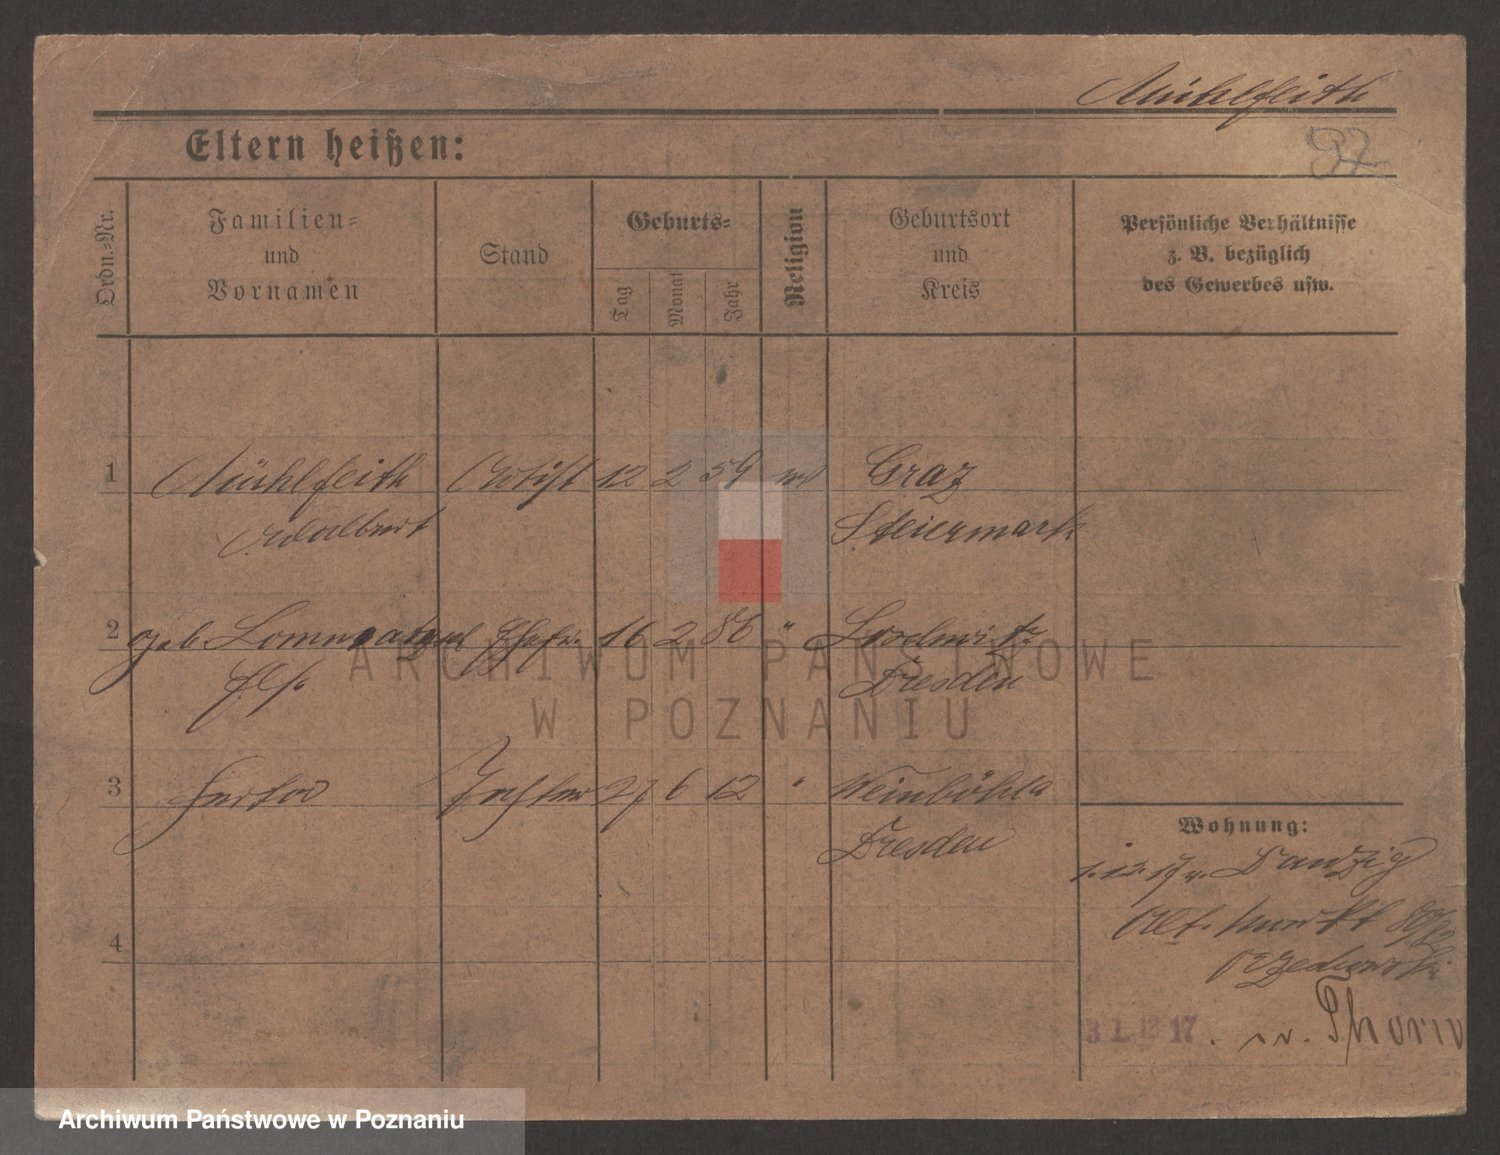 Mühlfeith
Eltern heißen:
97
Ordn.-Nr.
Familien- und Vornamen
Stand
Geburts-
Tag
Monat
Jahr
Religion
Geburtsort und Kreis
Persönliche Verhältnisse
z. B. bezüglich
des Gewerbes usw.
1 Mühlfeith Artist 12 2 59 Graz
Adalbert Steiermark
2 geb. Ehefr. 16 2 86 " Lockwitz
Dresden
3 Tochter 27 6 12 " Weinböhla
Dresden
4
Wohnung:
1.12.17 v. Danzig
Alt. Markt
31.12.17. n. Thorn
ARCHIWUM PAŃSTWOWE
W POZNANIU
Archiwum Państwowe w Poznaniu